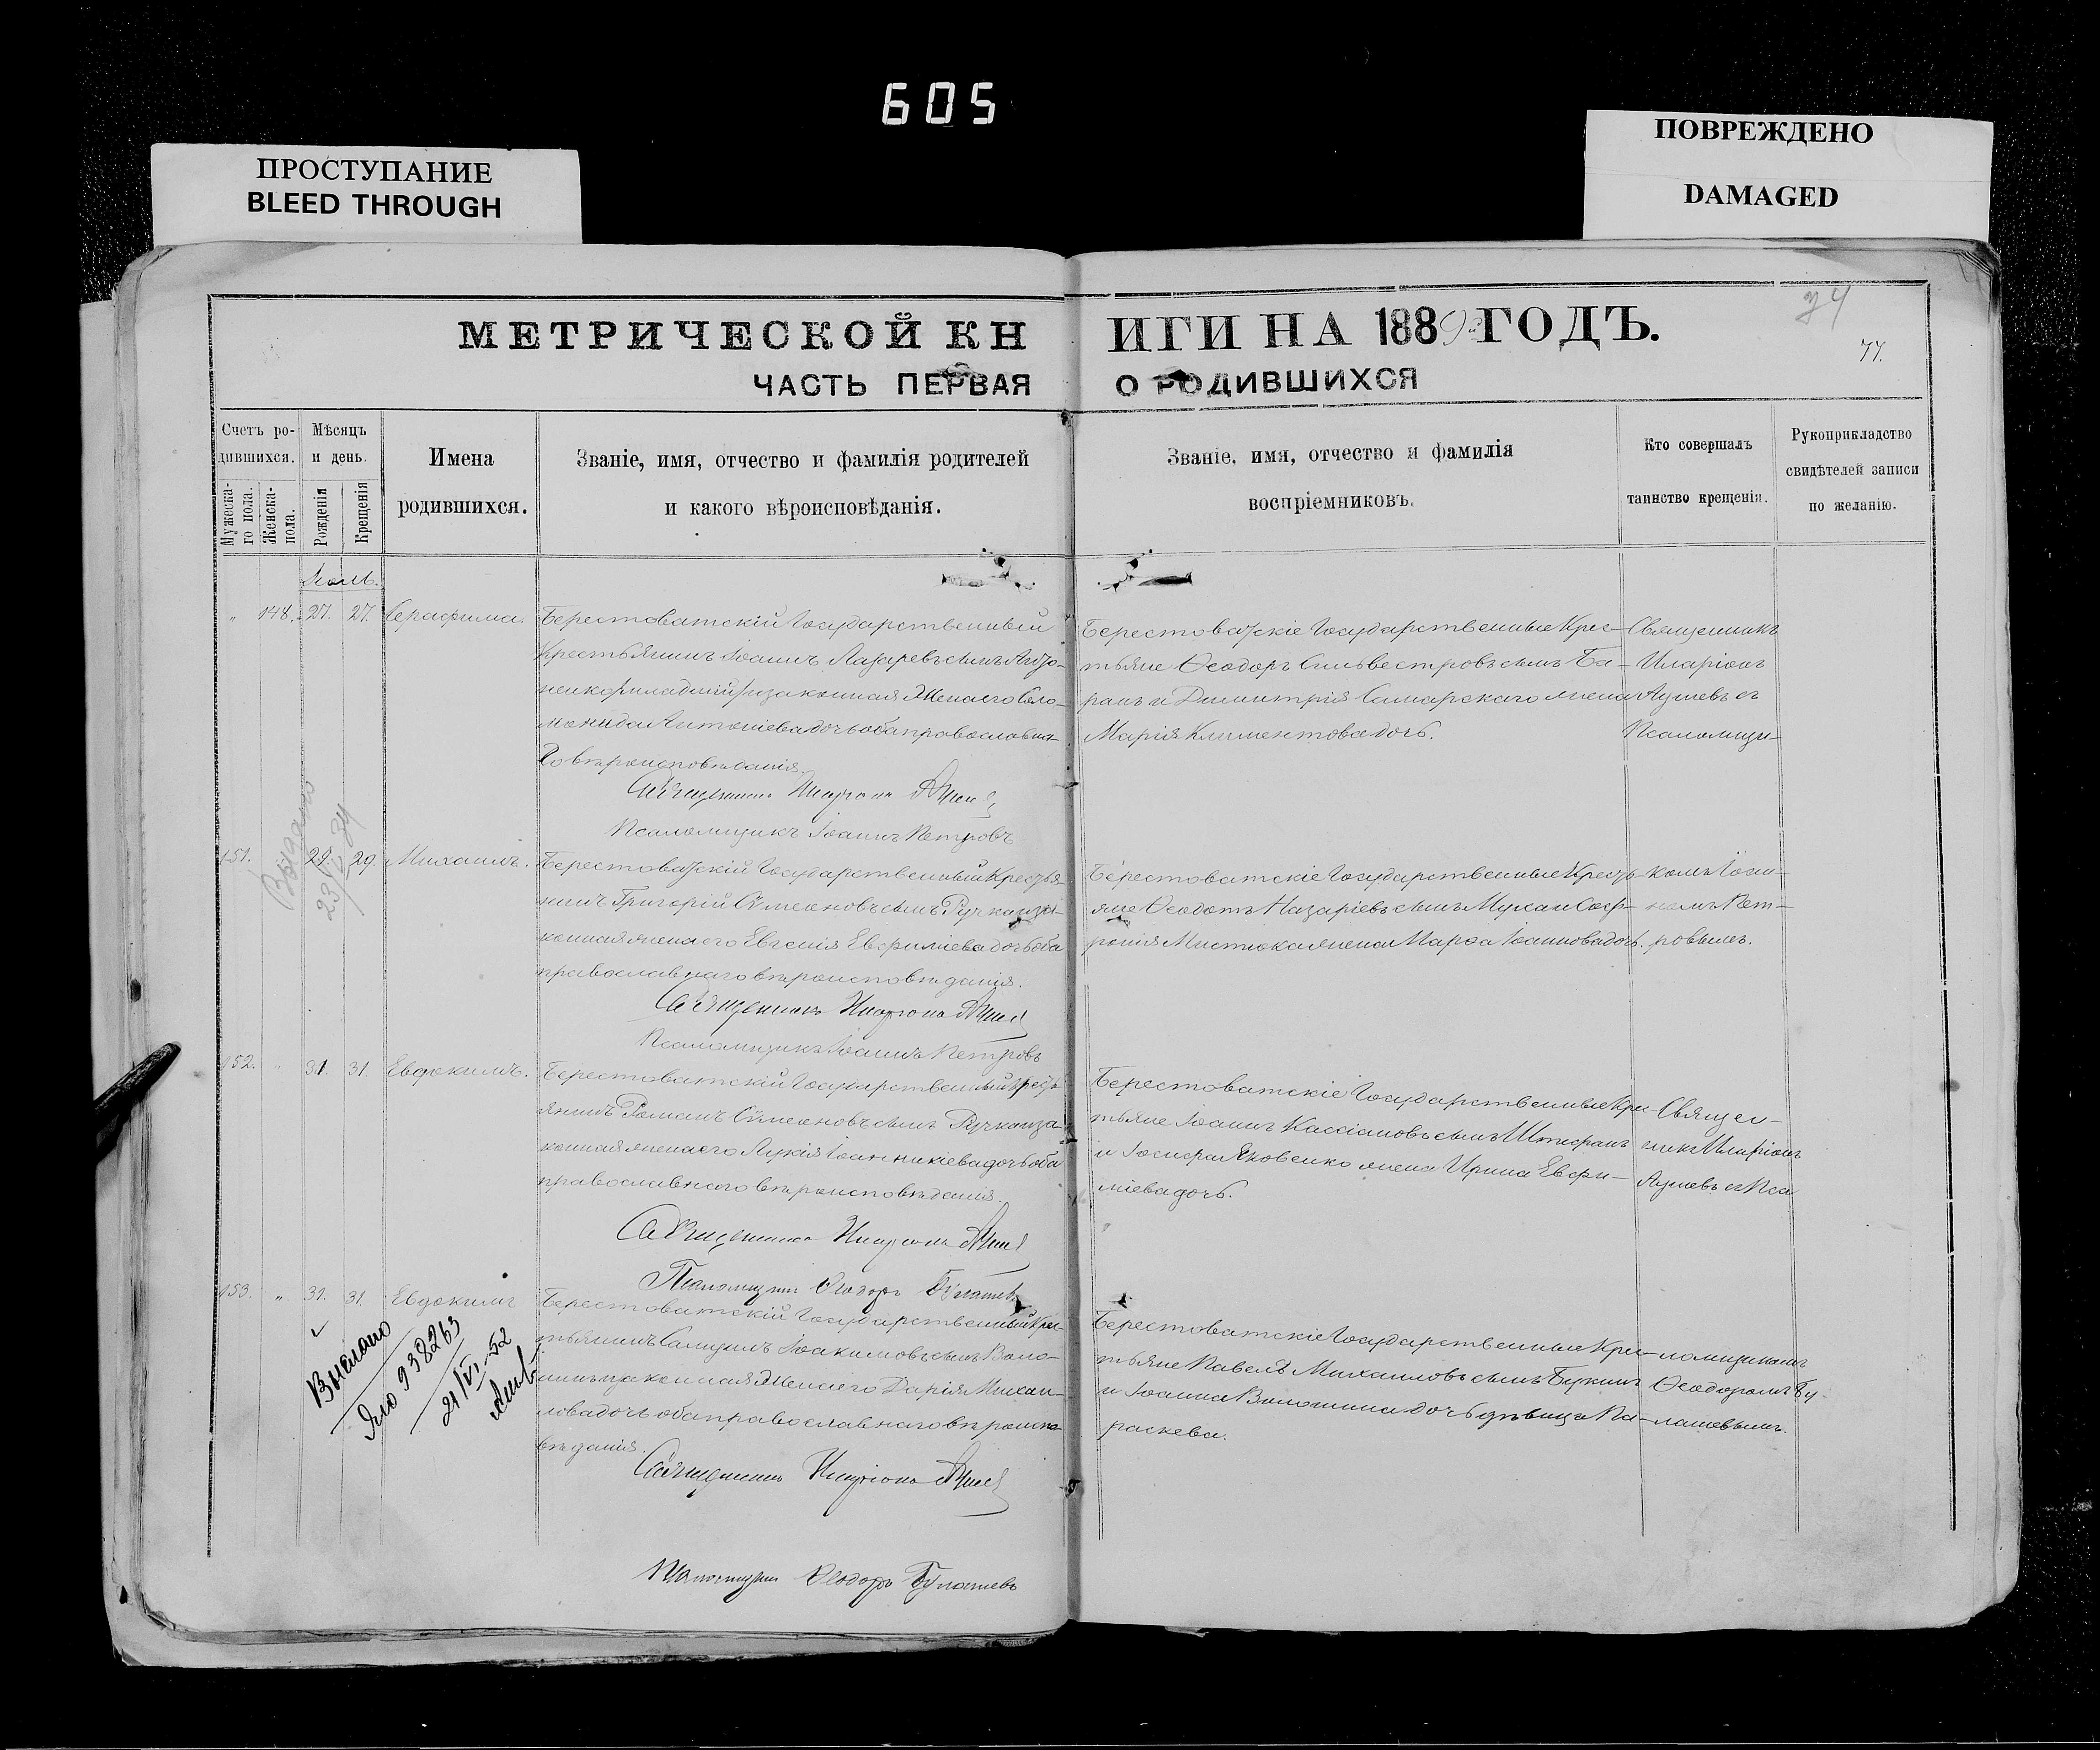 605
ПРОСТУПАНИЕ
BLEED THROUGH
ПОВРЕЖДЕНО
DAMAGED
74
77.
МЕТРИЧЕСКОЙ КНИГИ НА 1889 ГОДЪ.
ЧАСТЬ ПЕРВАЯ О РОДИВШИХСЯ
Счетъ ро-
дившихся.
Мужеска-
го пола.
Женска-
пола.
Мѣсяцъ
и день.
Рожденія
Крещенія
Имена
родившихся.
Званіе, имя, отчество и фамилія родителей
и какого вѣроисповѣданія.
Званіе, имя, отчество и фамилія
воспріемниковъ.
Кто совершалъ
таинство крещенія.
Рукоприкладство
свидѣтелей записи
по желанію.
„ 148. 27. 27. Серафима.
Берестоватскій Государственный
Крестьянинъ Іоаннъ Лазаревъ сынъ
законная жена его Соло-
монида Антоніева дочь оба православна-
го вѣроисповѣданія.
Священникъ Иларіонъ
Псаломщикъ Іоаннъ Петровъ
Берестоватскіе Государственные Крес-
тьяне Ѳеодоръ Сильвестровъ сынъ Ба-
ранъ и Димитрія Самарскаго жена
Марія Климентова дочь.
Священникъ
Иларіонъ
съ
Псаломщи-
151. 29. 29. Михаилъ.
Берестоватскій Государственный Крестья-
нинъ Григорій Сѵмеоновъ сынъ Ручка и за-
конная жена его Евгенія Евфиміева дочь оба
православнаго вѣроисповѣданія.
Священникъ Иларіонъ
Псаломщикъ Іоаннъ Петровъ
Берестоватскіе Государственные Кресть-
яне Ѳеодотъ Назаріевъ сынъ Муха и Соф-
ронія жена Марѳа Іоаннова дочь.
комъ Іоан-
номъ Пет-
ровымъ.
Выдано
152. „ 31. 31. Евдокимъ.
Берестоватскій Государственный Кресть-
янинъ Романъ Сѵмеоновъ сынъ Ручка и за-
конная жена его Лукія Іоанникіева дочь оба
православнаго вѣроисповѣданія.
Священникъ Иларіонъ
Псаломщикъ Ѳеодоръ Булашевъ
Берестоватскіе Государственные Крес-
тьяне Іоаннъ Кассіановъ сынъ
и Іосифа Яковенко жена Ирина Евфи-
міева дочь.
Священ-
никъ Иларіонъ
съ Пса-
153. „ 31. 31. Евдокимъ
Берестоватскій Государственный Крес-
тьянинъ Іоакимовъ сынъ Воло-
шинъ и законная жена его Дарія Михаи-
лова дочь оба православнаго вѣроиспо-
вѣданія.
Священникъ Иларіонъ
Псаломщикъ Ѳеодоръ Булашевъ
Берестоватскіе Государственные Крес-
тьяне Павелъ Михаиловъ сынъ Букинъ
и Іоанна Волошина дочь дѣвица Па-
раскева.
ломщикомъ
Ѳеодоромъ Бу-
лашевымъ.
Выслано
938263
21/VI-52